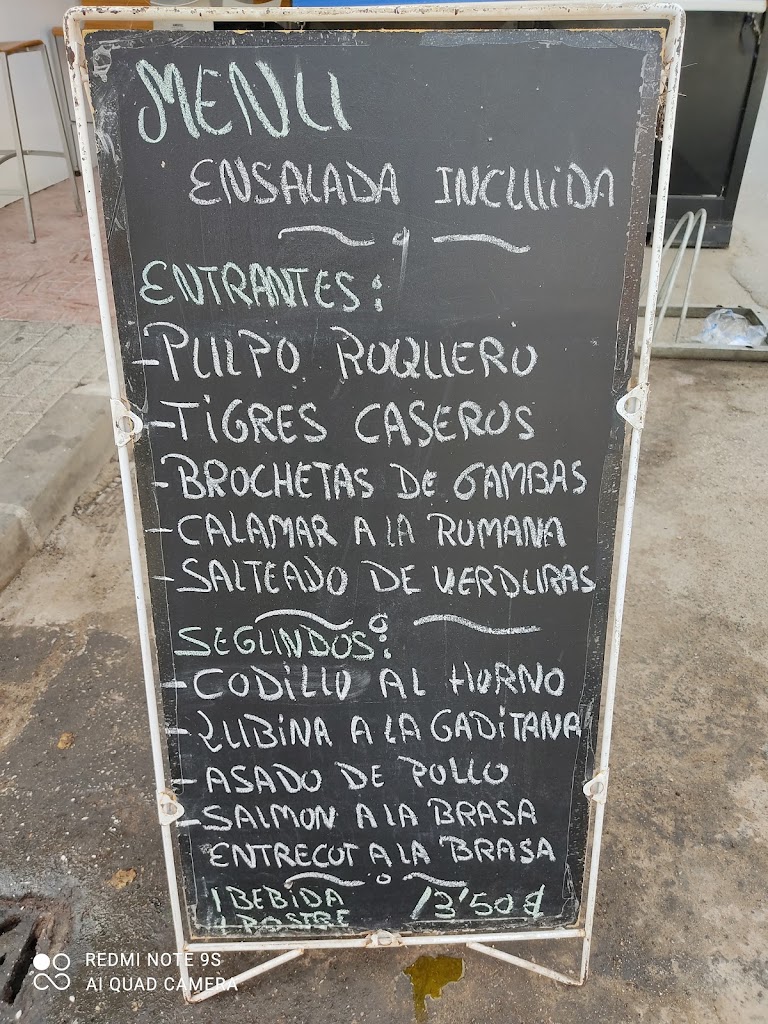 MENU
ENSALADA INCLUIDA
ENTRANTES:
-PULPO ROQUERO
-TIGRES CASEROS
-BROCHETAS DE GAMBAS
-CALAMAR A LA ROMANA
-SALTEADO DE VERDURAS
SEGUNDOS:
-CODILLO AL HORNO
-RUBINA A LA GADITANA
-ASADO DE POLLO
-SALMON A LA BRASA
ENTRECOT A LA BRASA
1 BEBIDA
1 POSTRE
13'50 €
REDMI NOTE 9S
AI QUAD CAMERA